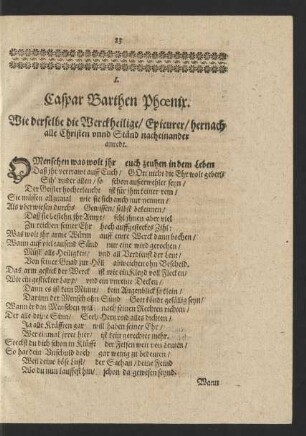 23
I.
Caspar Barthen Phœnix.
Wie derselbe die Werckheilige / Epicurer / hernach
alle Christen vnnd Ständ nacheinander
anredt.
O Menschen was wolt ihr euch zeuhen in dem Leben
Daß ihr vertrawt auff Euch / GOtt nicht die Ehr wolt geben /
Seh' wider allen / so sehen außerwehlet seyn /
Der Geister hocherleucht ist für ihm keiner rein /
Sie müssen allzumal wie sie sich auch nur nennen /
Als vberwiesen durchs Gewissen / selbst bekennen /
Daß sie sesselten ihr Ampt / fehl ihnen aber viel
Zu reichen seiner Ehr hoch auffgestecktes Ziel:
Was wolt ihr arme Würm auff ewre Werck dann bochen /
Wann auff viel tausend Sünd nur eine wird gerochen /
Müst' alls Heiligkeit / vnd all Verdienst der Leut /
Von seiner Gnad zur Höll abweichen ohn Bescheid.
Das arm geflickt der Werck ist wie ein Kleyd voll Flecken /
Wie ein geflickter Harp vnd ein vnreine Decken /
Dann es ist kein Mensch / kein Augenblick so klein /
Darinn der Mensch ohn Sünd Gott könde gefällig seyn /
Wann er den Menschen will nach seinen Rechten richten /
Der alle des / e Sinn / Seel / Hertz vnd alles tichten /
Ja alle Kräfften gar will haben seiner Ehr /
Wer einmal ferre hier / ist kein gerechter mehr.
Steckst du dich schon in Klüfft der Felsen weit von Leuten /
So hat dein Vnschuld doch gar wenig zu bedeuten /
Weil deine böse Lust / der Sathan / deine Feind
Wo du nun lauffest hin / schon da gewesen seynd.
Wann